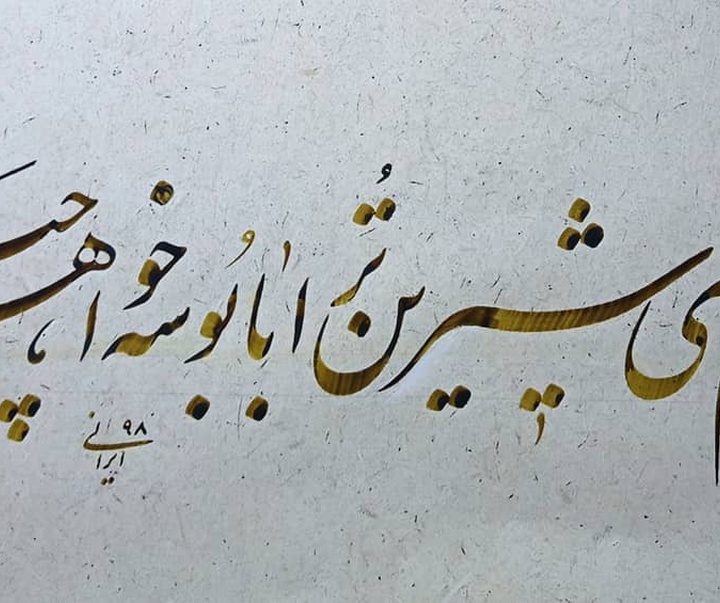 ی شیرین تُرا با بُوسه خواه
ایرانی ۹۸